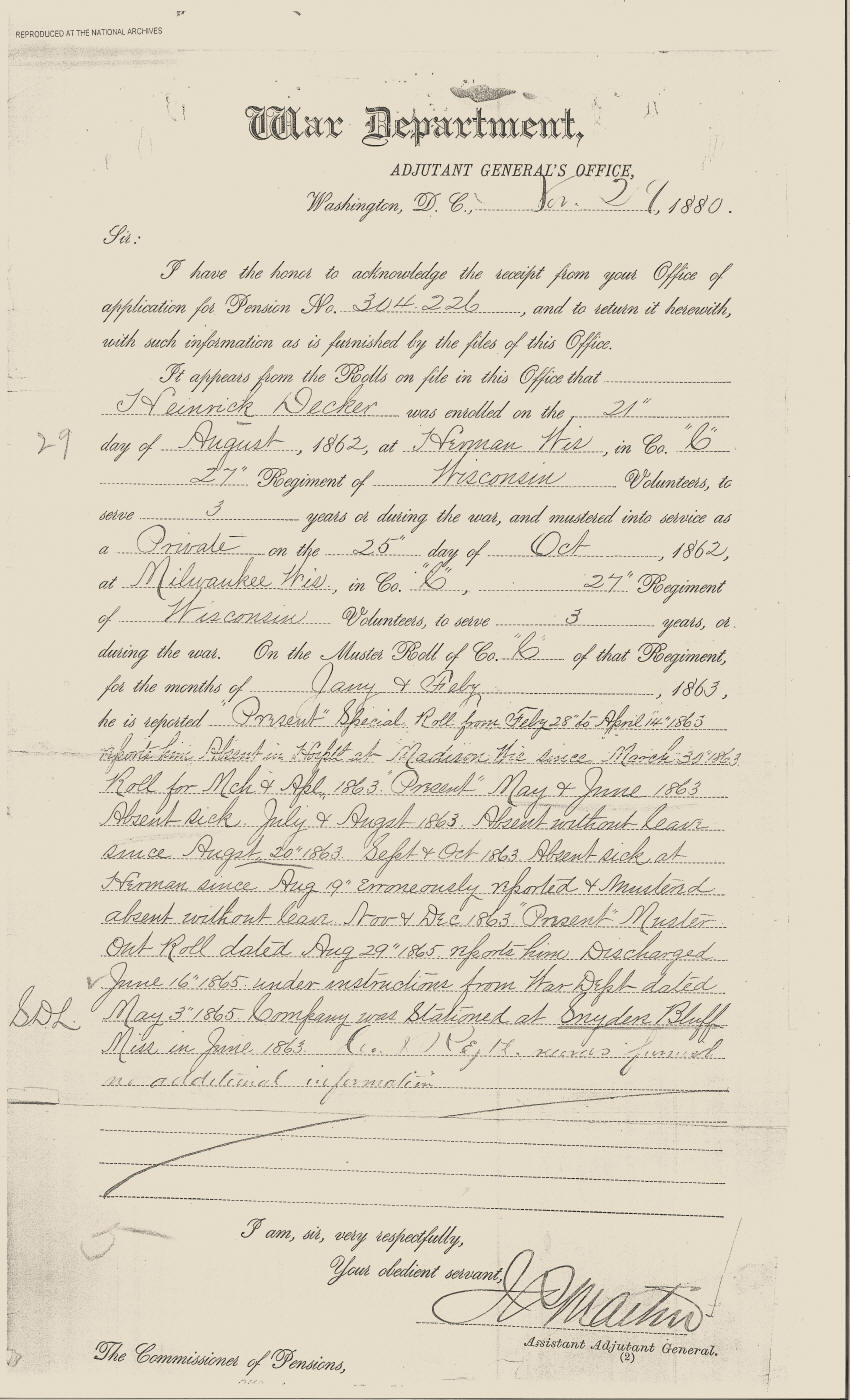 REPRODUCED AT THE NATIONAL ARCHIVES
War Department,
ADJUTANT GENERAL'S OFFICE,
Washington, D. C., Nov. 29, 1880.
Sir:
I have the honor to acknowledge the receipt from your Office of
application for Pension No. 304.226, and to return it herewith,
with such information as is furnished by the files of this Office.
It appears from the Rolls on file in this Office that
Heinrick Decker was enrolled on the 21"
29
day of August, 1862, at Herman Wis, in Co. "C"
27" Regiment of Wisconsin Volunteers, to
serve 3 years or during the war, and mustered into service as
a Private on the 25" day of Oct, 1862,
at Milwaukee Wis., in Co. "C", 27" Regiment
of Wisconsin Volunteers, to serve 3 years, or
during the war. On the Muster Roll of Co. "C" of that Regiment,
for the months of Jany & Feby, 1863,
he is reported "Present" Special Roll from Feby 28" to April 14" 1863
reports him Absent in Hosptl at Madison Wis since March 30" 1863
Roll for Mch & Apl. 1863 "Present" May & June 1863
Absent sick. July & Augst 1863. Absent without leave
since Augst. 20" 1863. Sept & Oct 1863 Absent sick at
Herman since Aug 19" Erroneously reported & mustered
absent without leave. Nov & Dec 1863 "Present" Muster
Out Roll dated Aug 29" 1865 reports him Discharged
June 16" 1865 under instructions from War Dept dated
SDL.
May 3" 1865. Company was Stationed at Snyders Bluff
Miss in June 1863. furnish
no additional information
I am, sir, very respectfully,
Your obedient servant,
J P Martin
Assistant Adjutant General.
(2)
The Commissioner of Pensions,